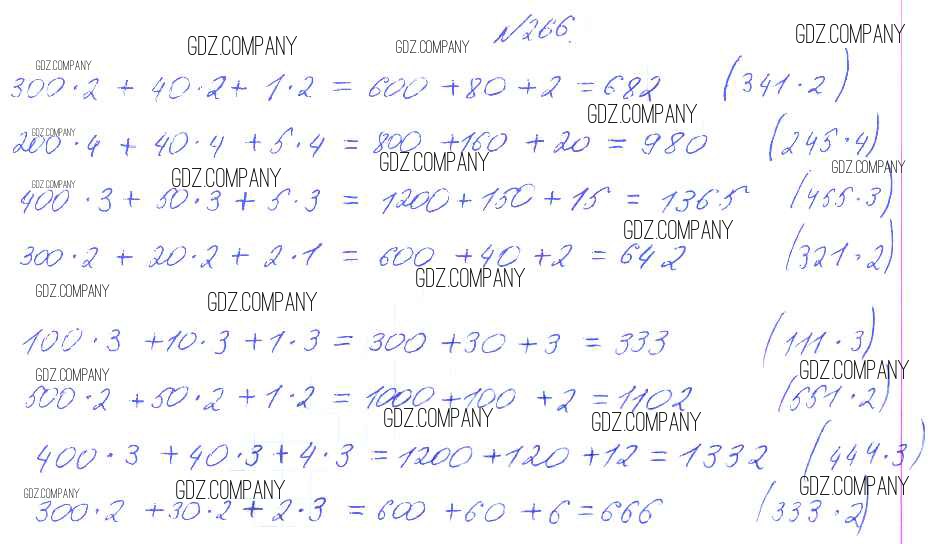 №266.
GDZ.COMPANY GDZ.COMPANY GDZ.COMPANY
GDZ.COMPANY
300·2 + 40·2 + 1·2 = 600 + 80 + 2 = 682 (341·2)
GDZ.COMPANY
GDZ.COMPANY
200·4 + 40·4 + 5·4 = 800 + 160 + 20 = 980 (245·4)
GDZ.COMPANY GDZ.COMPANY
GDZ.COMPANY GDZ.COMPANY
400·3 + 50·3 + 5·3 = 1200 + 150 + 15 = 1365 (455·3)
GDZ.COMPANY
300·2 + 20·2 + 2·1 = 600 + 40 + 2 = 642 (321·2)
GDZ.COMPANY
GDZ.COMPANY GDZ.COMPANY
100·3 + 10·3 + 1·3 = 300 + 30 + 3 = 333 (111·3)
GDZ.COMPANY GDZ.COMPANY
500·2 + 50·2 + 1·2 = 1000 + 100 + 2 = 1102 (551·2)
GDZ.COMPANY GDZ.COMPANY
400·3 + 40·3 + 4·3 = 1200 + 120 + 12 = 1332 (444·3)
GDZ.COMPANY GDZ.COMPANY GDZ.COMPANY
300·2 + 30·2 + 2·3 = 600 + 60 + 6 = 666 (333·2)